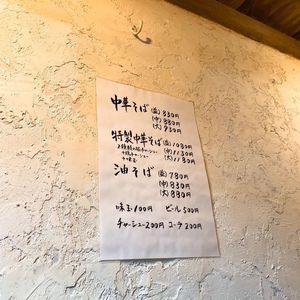 中華そば (並) 830円
(中) 880円
(大) 930円
特製中華そば (並) 1080円
(中) 1130円
(大) 1180円
+味玉
油そば (並) 780円
(中) 830円
(大) 880円
味玉100円 ビール500円
チャーシュー200円 コーラ200円